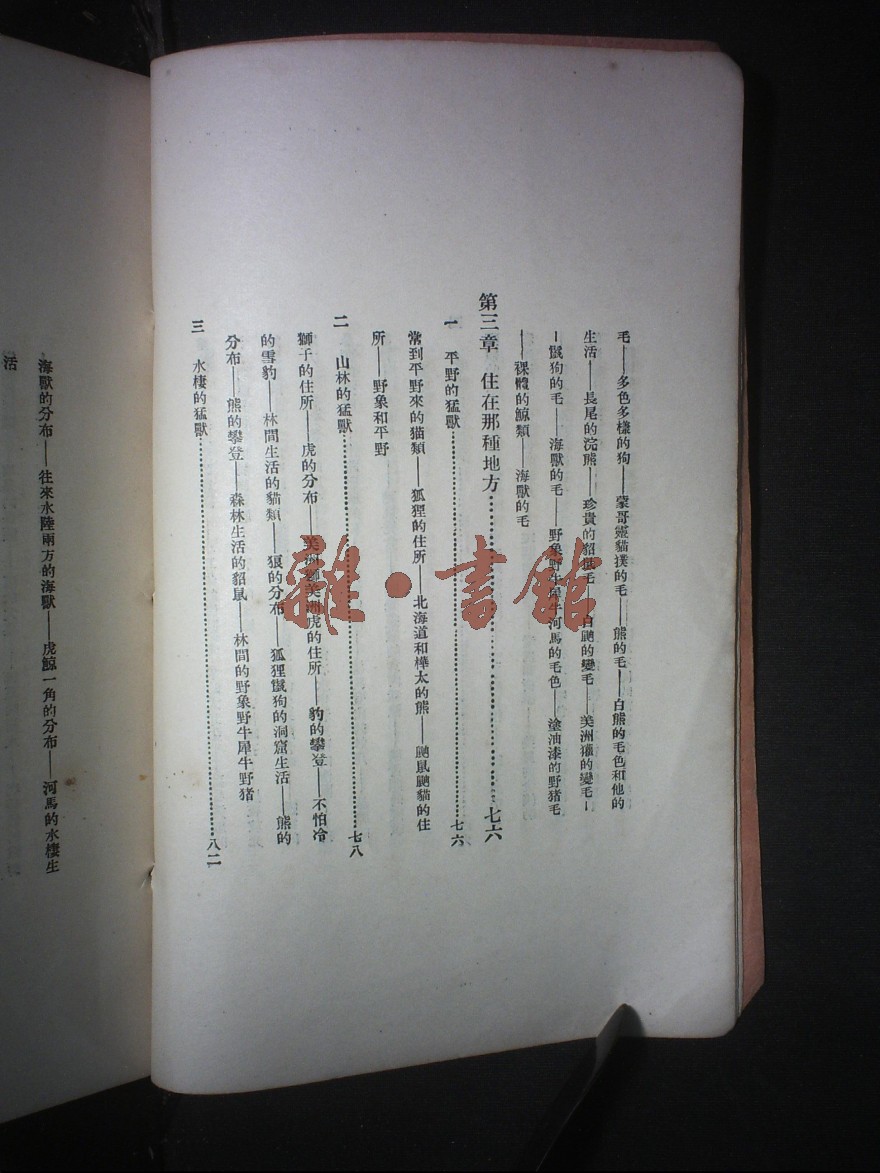 毛——多色多樣的狗——蒙哥靈貓撲的毛——熊的毛——白熊的毛色和他的
生活——長尾的浣熊——珍貴的貂類毛——白鼬的變毛——美洲獾的變毛—
—鬣狗的毛——海獸的毛——野象野牛犀牛河馬的毛色——塗油漆的野猪毛
——裸體的鯨類——海獸的毛
第三章 住在那種地方……七六
一 平野的猛獸……七六
常到平野來的貓類——狐狸的住所——北海道和樺太的熊——鼬鼠鼬貓的住
所——野象和平野
二 山林的猛獸……七八
獅子的住所——虎的分布——美洲獅美洲虎的住所——豹的攀登——不怕冷
的雪豹——林間生活的貓類——狼的分布——狐狸鬣狗的洞窟生活——熊的
分布——熊的攀登——森林生活的貂鼠——林間的野象野牛犀牛野猪
三 水棲的猛獸……八二
海獸的分布——往來水陸兩方的海獸——虎鯨一角的分布——河馬的水棲生
活
雜·書館